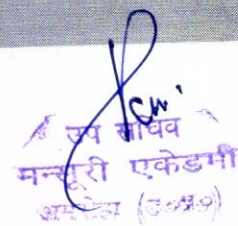 उप सचिव
मन्सूरी एकेडमी
(उ०प्र०)